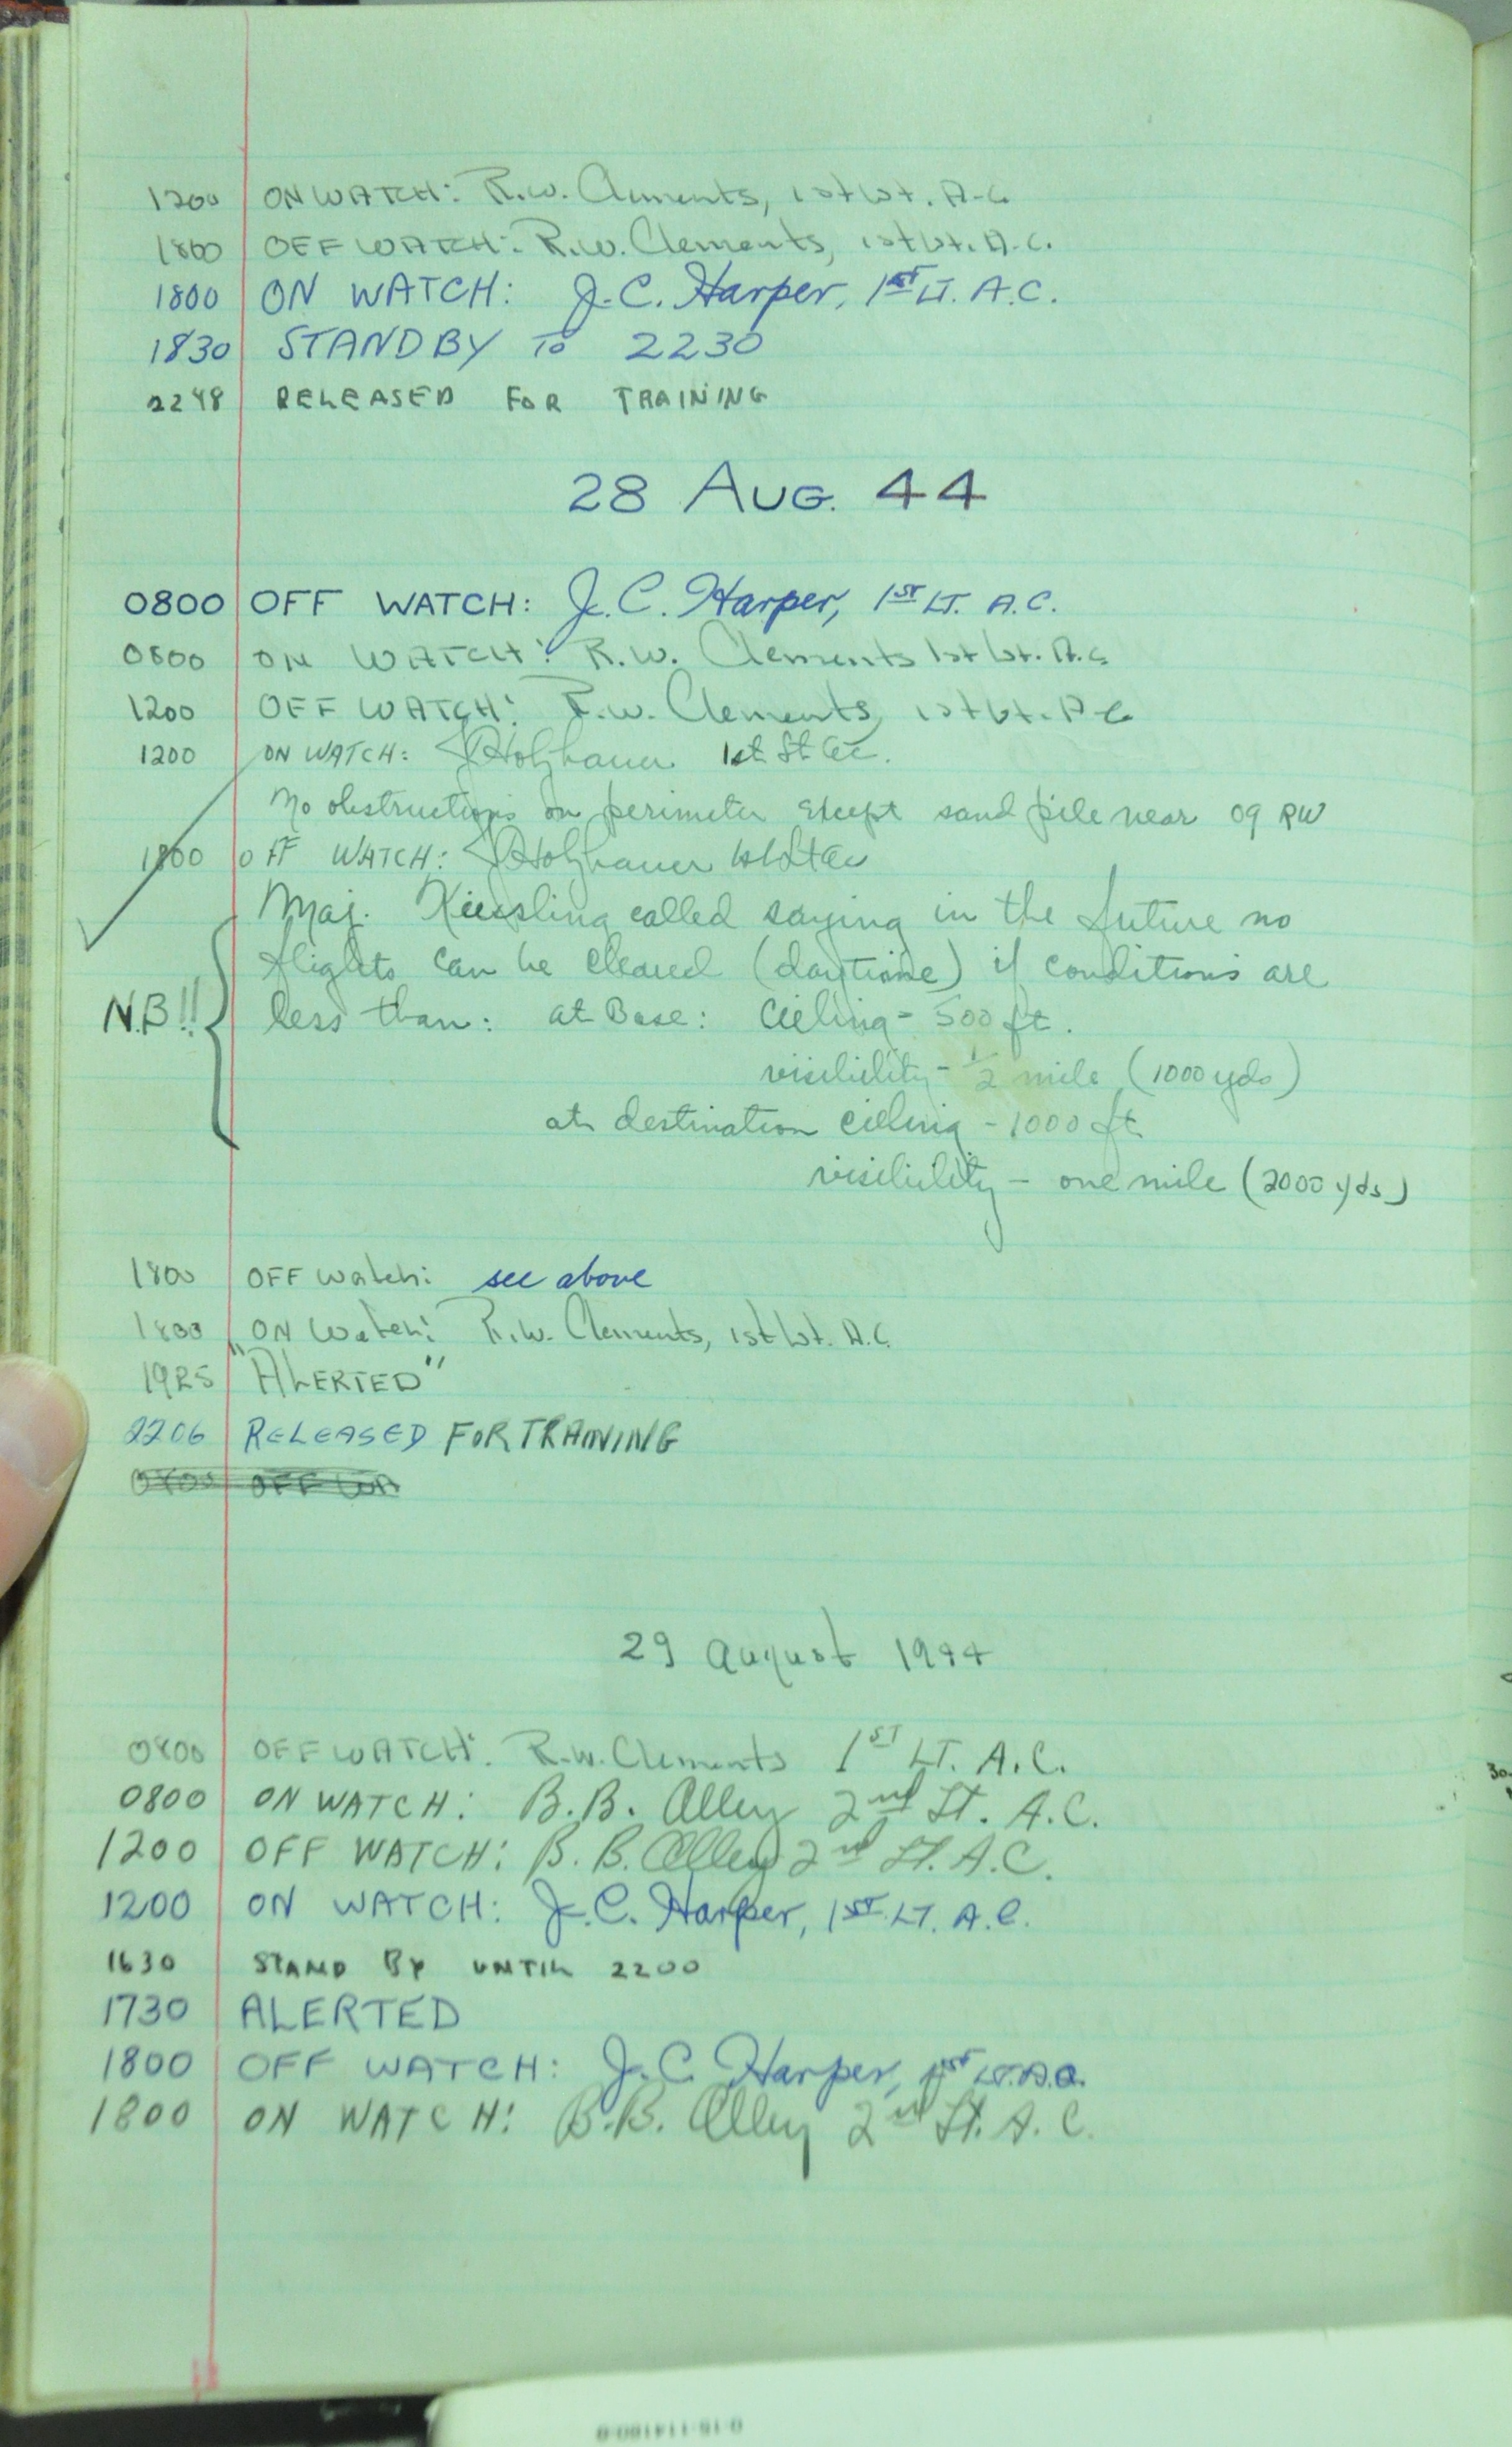 1200 ON WATCH: R.W. Clements, 1st Lt. A.C.
1800 OFF WATCH: R.W. Clements, 1st Lt. A.C.
1800 ON WATCH: J.C. Harper, 1ST LT. A.C.
1830 STAND BY TO 2230
2248 RELEASED FOR TRAINING
28 AUG. 44
0800 OFF WATCH: J.C. Harper, 1ST LT. A.C.
0800 ON WATCH: R.W. Clements 1st Lt. A.C
1200 OFF WATCH: R.W. Clements, 1st Lt. A.C
1200 ON WATCH: Holzhauer 1st Lt AC.
No obstructions on perimeter except sand pile near 09 RW
1800 OFF WATCH: Holzhauer 1st Lt AC
Maj. Kiessling called saying in the future no
flights can be cleared (daytime) if conditions are
N.B!! less than: at Base: Cieling - 500 ft.
visibility - 1/2 mile (1000 yds)
at destination cieling - 1000 ft
visibility - one mile (2000 yds)
1800 OFF Watch: see above
1800 ON Watch: R.W. Clements, 1st Lt. A.C.
1925 "ALERTED"
2206 RELEASED FOR TRAINING
0800 OFF WA
29 August 1944
0800 OFF WATCH: R.W. Clements 1ST LT. A.C.
0800 ON WATCH: B.B. Alley 2nd Lt. A.C.
1200 OFF WATCH: B.B. Alley 2nd Lt. A.C.
1200 ON WATCH: J.C. Harper, 1ST LT. A.C.
1630 STAND BY UNTIL 2200
1730 ALERTED
1800 OFF WATCH: J.C. Harper, 1ST LT. A.C.
1800 ON WATCH: B.B. Alley 2nd Lt. A.C.